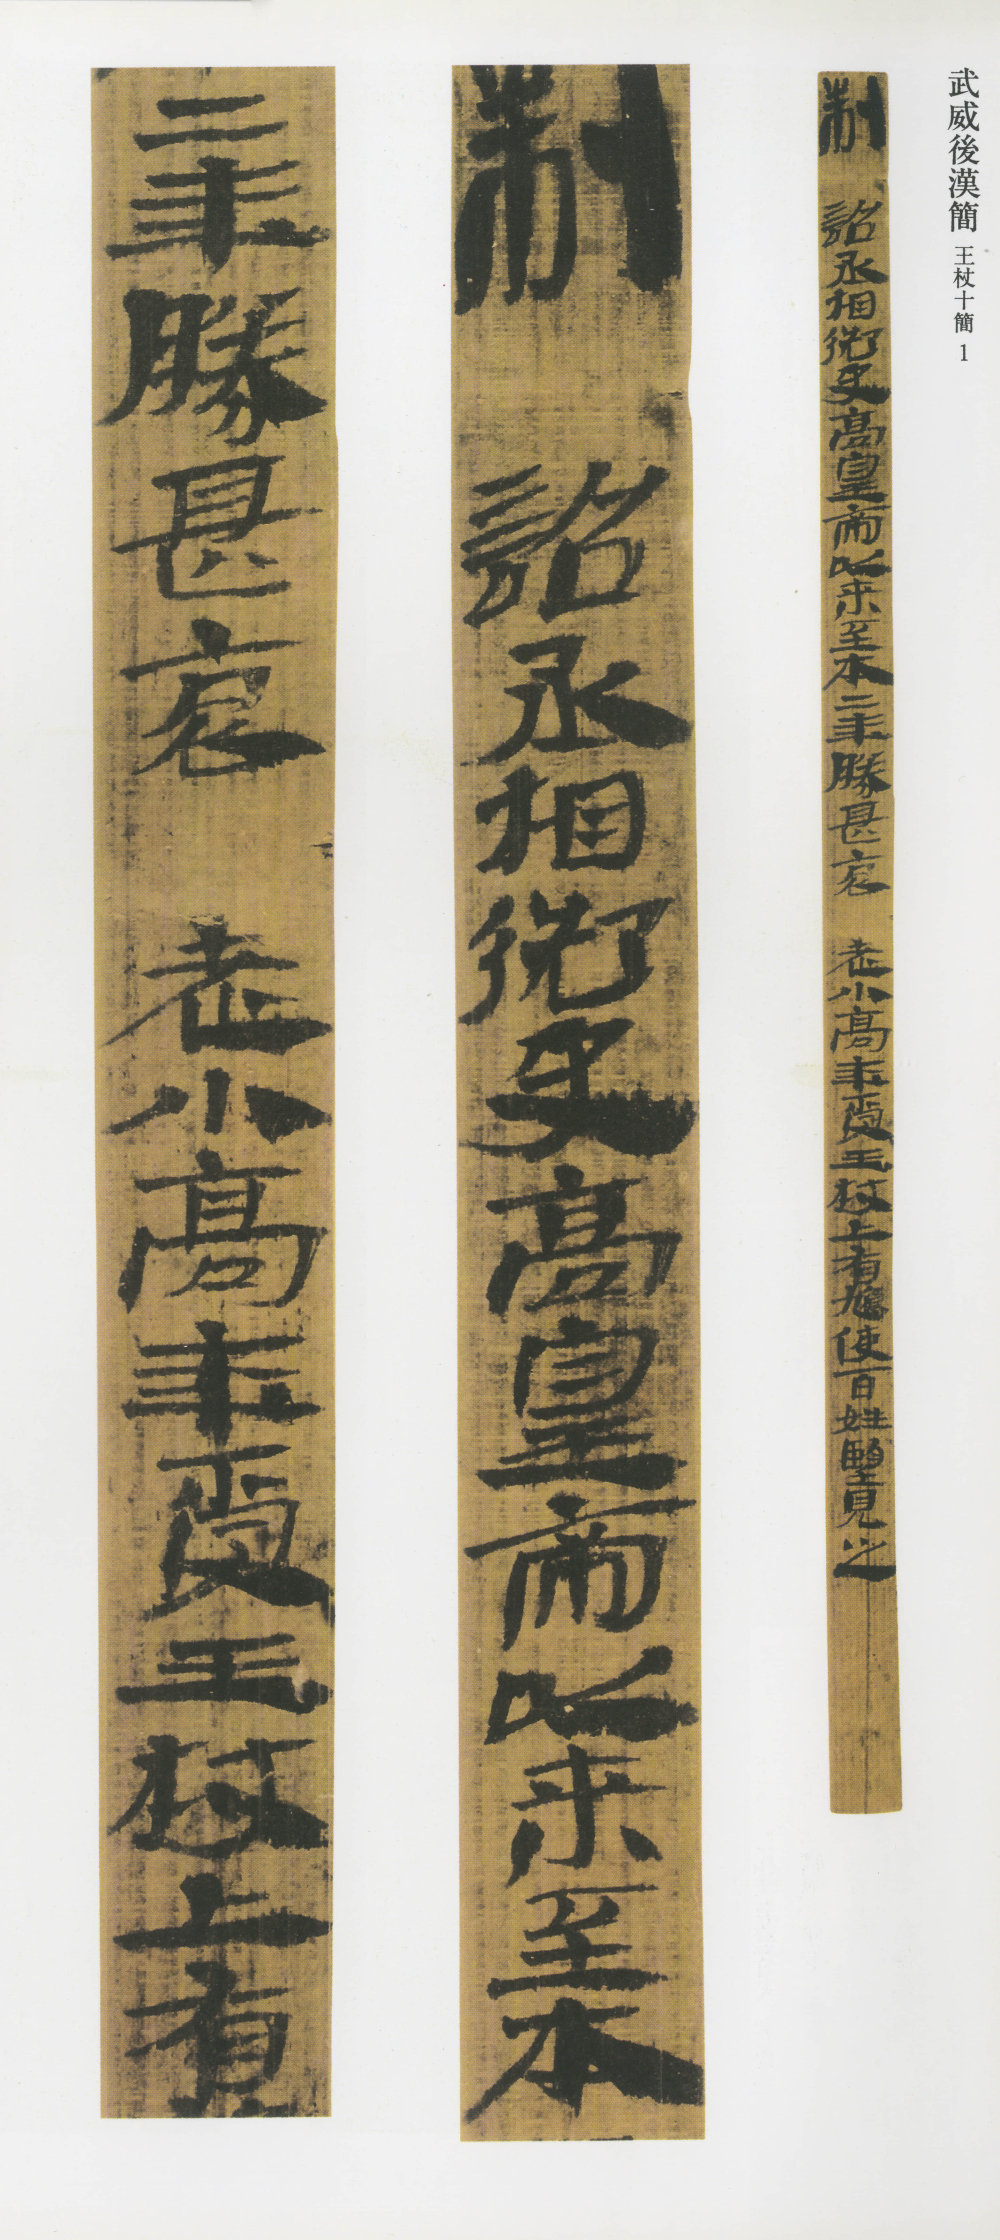 武威後漢簡 王杖十簡 1
制 詔丞相御史高皇帝以來至本二年勝甚哀 老小高年受王杖上有鳩使百姓望見之
制 詔丞相御史高皇帝以來至本
二年勝甚哀 老小高年受王杖上有